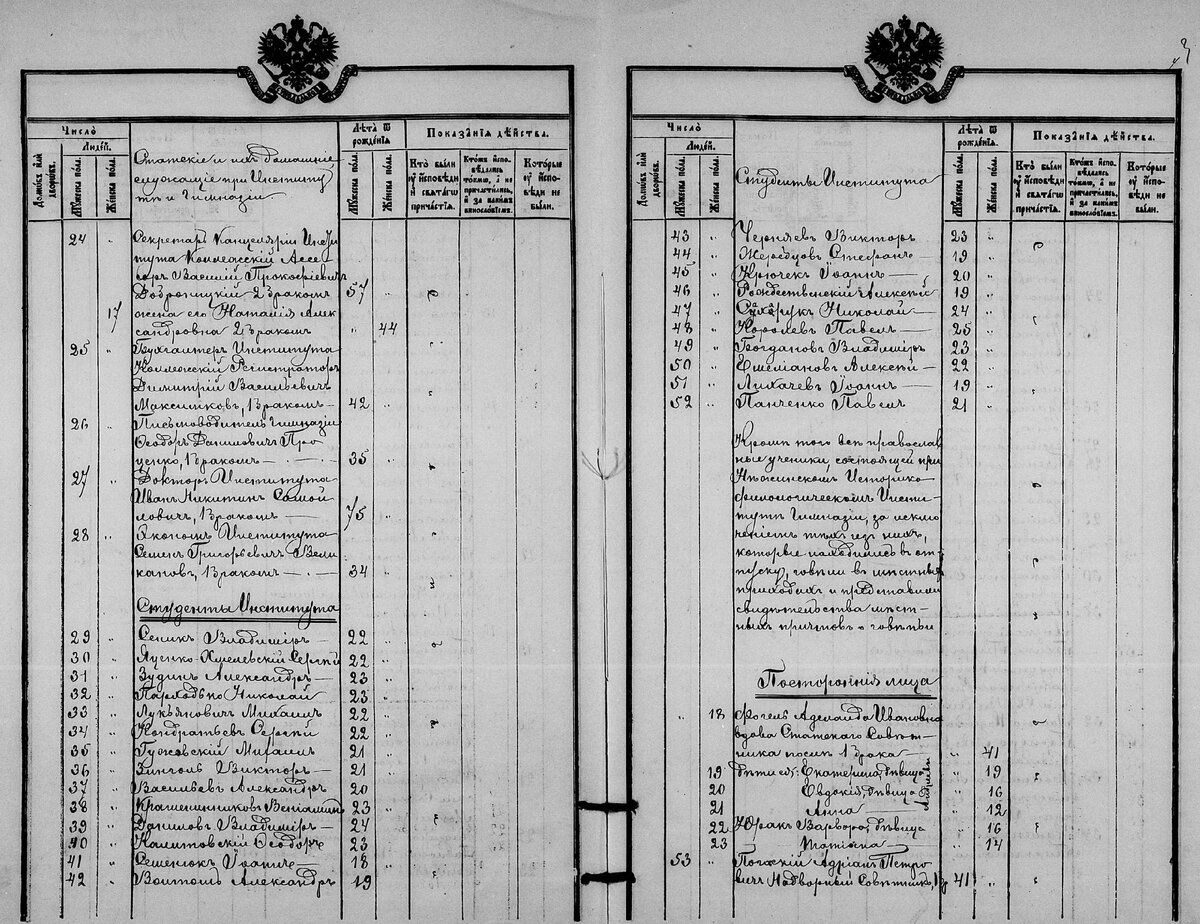 3
Число
Людей.
Домовъ или дворовъ.
Мужеска пола.
Женска пола.
Статскіе и ихъ домашніе
служащіе при Институ
тѣ и Гимназіи
Лѣта ѿ рожденія
Мужеска пола.
Женска пола.
Показанїѧ дѣйства.
Кто были оу исповѣди и свѧтагѡ причастїѧ.
Ктожъ исповѣдались токмѡ, а не причастились, и за какимъ винословїемъ.
Которые оу исповѣди не были.
24 " Секретарь Канцеляріи Инсти
тута Коллежскій Ассе
соръ Василій Прокофіевичъ
Доброницкій 2 бракомъ 57 "
17 жена его Наталія Алек
сандровна 2 бракомъ " 44
25 " Бухгалтеръ Института
Коллежскій Регистраторъ
Димитрій Васильевичъ
Максимковъ, 1 бракомъ — 42 "
26 " Письмоводитель Гимназіи
Ѳеодоръ Даниловичъ Про
ценко, 1 бракомъ — 35 "
27 " Докторъ Института
Иванъ Никитинъ Самой
ловичъ, 1 бракомъ — 75 "
28 " Экономъ Института
Семенъ Григорьевичъ Вели
кановъ, 1 бракомъ — 34 "
Студенты Института
29 " Сеникъ Владиміръ — 22 "
30 " Яценко-Хмелевскій Сергѣй 22 "
31 " Зудинъ Александръ — 23 "
32 " Пархадько Николай 23 "
33 " Лукьяновичъ Михаилъ 22 "
34 " Кондратьевъ Сергѣй 22 "
35 " Гужовскій Михаилъ 21 "
36 " Зингель Викторъ — 21 "
37 " Васильевъ Александръ 20 "
38 " Крашенинниковъ Веніаминъ 23 "
39 " Даниловъ Владиміръ — 24 "
40 " Калитовскій Ѳеодоръ 23 "
41 " Семенюкъ Іоаннъ — 18 "
42 " Воитомъ Александръ 19 "
Число
Людей.
Домовъ или дворовъ.
Мужеска пола.
Женска пола.
Студенты Института
Лѣта ѿ рожденія
Мужеска пола.
Женска пола.
Показанїѧ дѣйства.
Кто были оу исповѣди и свѧтагѡ причастїѧ.
Ктожъ исповѣдались токмѡ, а не причастились, и за какимъ винословїемъ.
Которые оу исповѣди не были.
43 " Черняевъ Викторъ 23 "
44 " Жеребцовъ Стефанъ — 19 "
45 " Крючекъ Іоаннъ — 20 "
46 " Рождественскій Алексѣй 19 "
47 " Сухарукъ Николай — 24 "
48 " Королевъ Павелъ — 25 "
49 " Богдановъ Владиміръ 23 "
50 " Емельяновъ Алексѣй — 22 "
51 " Лихачевъ Іоаннъ — 19 "
52 " Панченко Павелъ 21 "
Кромѣ того всѣ православ
ные ученики, состоящей при
Нѣжинскомъ Историко-
филологическомъ Инсти-
тутѣ Гимназіи, за исклю
ченіемъ тѣхъ изъ нихъ,
которые находились въ от
пуску, говѣли въ мѣстныхъ
приходахъ и представили
свидѣтельства мѣст-
ныхъ причтовъ о говѣніи
Постороннія лица
" 18 Фогель Аделаида Ивановна
вдова Статскаго Совѣт-
ника послѣ 1 брака — " 41
19 дѣти ея: Екатерина, дѣвица " 19
20 Евдокія, дѣвица " 16
21 Анна — " 12
22 Юракъ Варвара, дѣвица " 16
23 Татіана — " 14
53 " Погскій Адріанъ Петро
вичъ Надворный Совѣтникъ, 1 бр 41 "